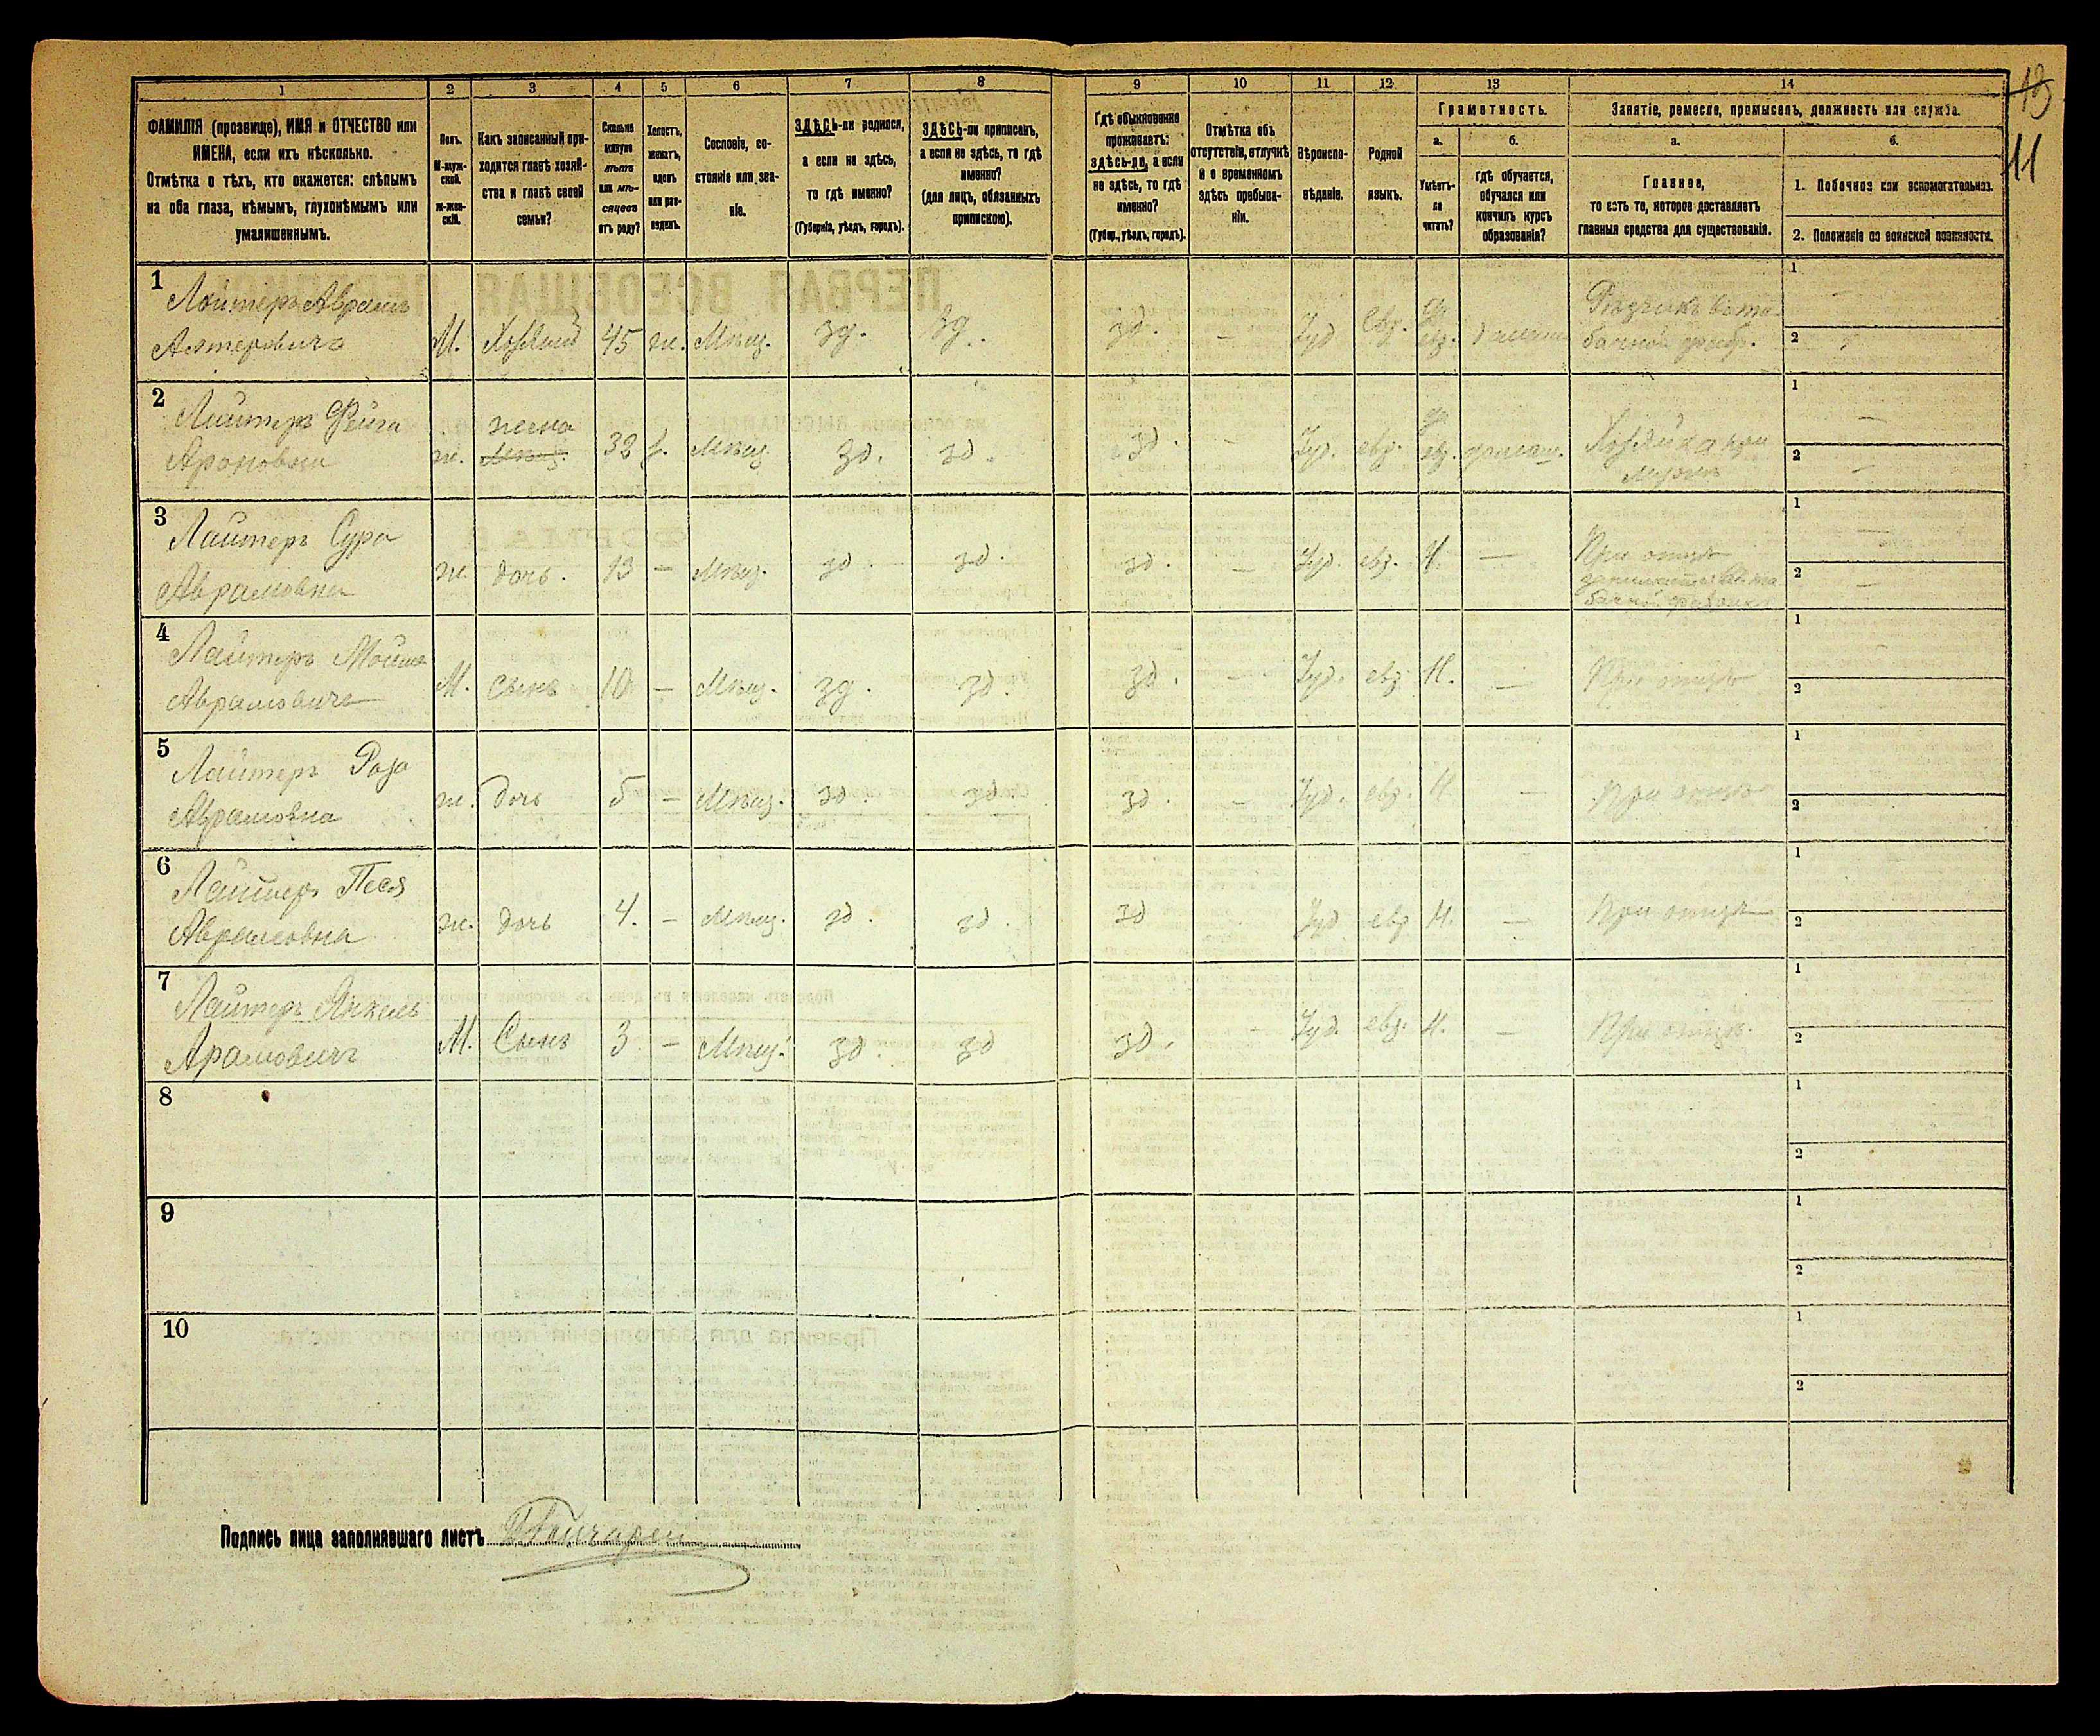 1 2 3 4 5 6 7 8 9 10 11 12 13 14
ФАМИЛІЯ (прозвище), ИМЯ и ОТЧЕСТВО или
ИМЕНА, если ихъ нѣсколько.
Отмѣтка о тѣхъ, кто окажется: слѣпымъ
на оба глаза, нѣмымъ, глухонѣмымъ или
умалишеннымъ.
Полъ.
М-муж-
ской.
Ж-жен-
скій.
Какъ записанный при-
ходится главѣ хозяй-
ства и главѣ своей
семьи?
Сколько
минуло
лѣтъ
или мѣ-
сяцевъ
отъ роду?
Холостъ,
женатъ,
вдовъ
или раз-
веденъ.
Сословіе, со-
стояніе или зва-
ніе.
ЗДѢСЬ-ли родился,
а если не здѣсь,
то гдѣ именно?
(Губернія, уѣздъ, городъ).
ЗДѢСЬ-ли приписанъ,
а если не здѣсь, то гдѣ
именно?
(для лицъ, обязанныхъ
припискою).
Гдѣ обыкновенно
проживаетъ:
здѣсь-ли, а если
не здѣсь, то гдѣ
именно?
(Губер., уѣздъ, городъ).
Отмѣтка объ
отсутствіи, отлучкѣ
и о временномъ
здѣсь пребыва-
ніи.
Вѣроиспо-
вѣданіе.
Родной
языкъ.
Грамотность.
а. б.
Умѣетъ-
ли
читать?
гдѣ обучается,
обучался или
кончилъ курсъ
образованія?
Занятіе, ремесло, промыселъ, должность или служба.
а. б.
Главное,
то есть то, которое доставляетъ
главныя средства для существованія.
1. Побочное или вспомогательное.
2. Положеніе по воинской повинности.
19
11
1 Лайтеръ Аврамъ
Алтеровичъ М. Хозяинъ 45 ж. Мѣщ. зд. зд. зд. - Іуд. евр. евр. домаш.
Рѣзчикъ въ та-
бачной фабр.
1 -
2
2 Лайтеръ Фейга
Ароновна ж. жена 32 Мѣщ. зд. зд. зд. - Іуд. евр. евр. домаш.
Хозяйка при
мужѣ
1 -
2 -
3 Лайтеръ Сура
Аврамовна ж. дочь. 13 - Мѣщ. зд. зд. зд. - Іуд. евр. Н. -
При отцѣ
бачной фабрик
1 -
2 -
4 Лайтеръ Мойше
Аврамовичъ М. сынъ 10 - Мѣщ. зд. зд. зд. - Іуд. евр. Н. - При отцѣ
1 -
2
5 Лайтеръ Роза
Аврамовна ж. дочь 5 - Мѣщ. зд. зд. зд. - Іуд. евр. Н. - При отцѣ
1
2
6 Лайтеръ Песя
Аврамовна ж. дочь 4. - Мѣщ. зд. зд. зд Іуд евр Н. - При отцѣ
1
2
7 Лайтеръ Янкель
Арамовичъ М. Сынъ 3 - Мѣщ. зд. зд зд. - Іуд. евр. Н. - При отцѣ.
1
2
8
1
2
9
1
2
10
1
2
Подпись лица заполнявшаго листъ